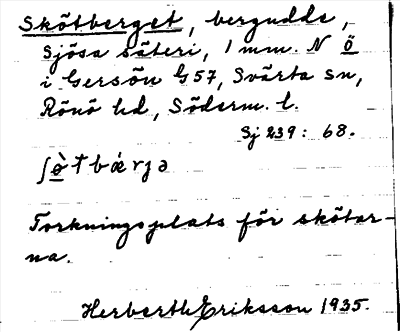 Skötberget, bergudde,
Sjösa säteri, 1 mm. N Ö
i Gersön G57, Svärta sn,
Rönö hd, Söderm. l.
Sj 239: 68.
ʃø̀tbǽrjə
Torkningsplats för skötar-
na.
Herberth Eriksson 1935.